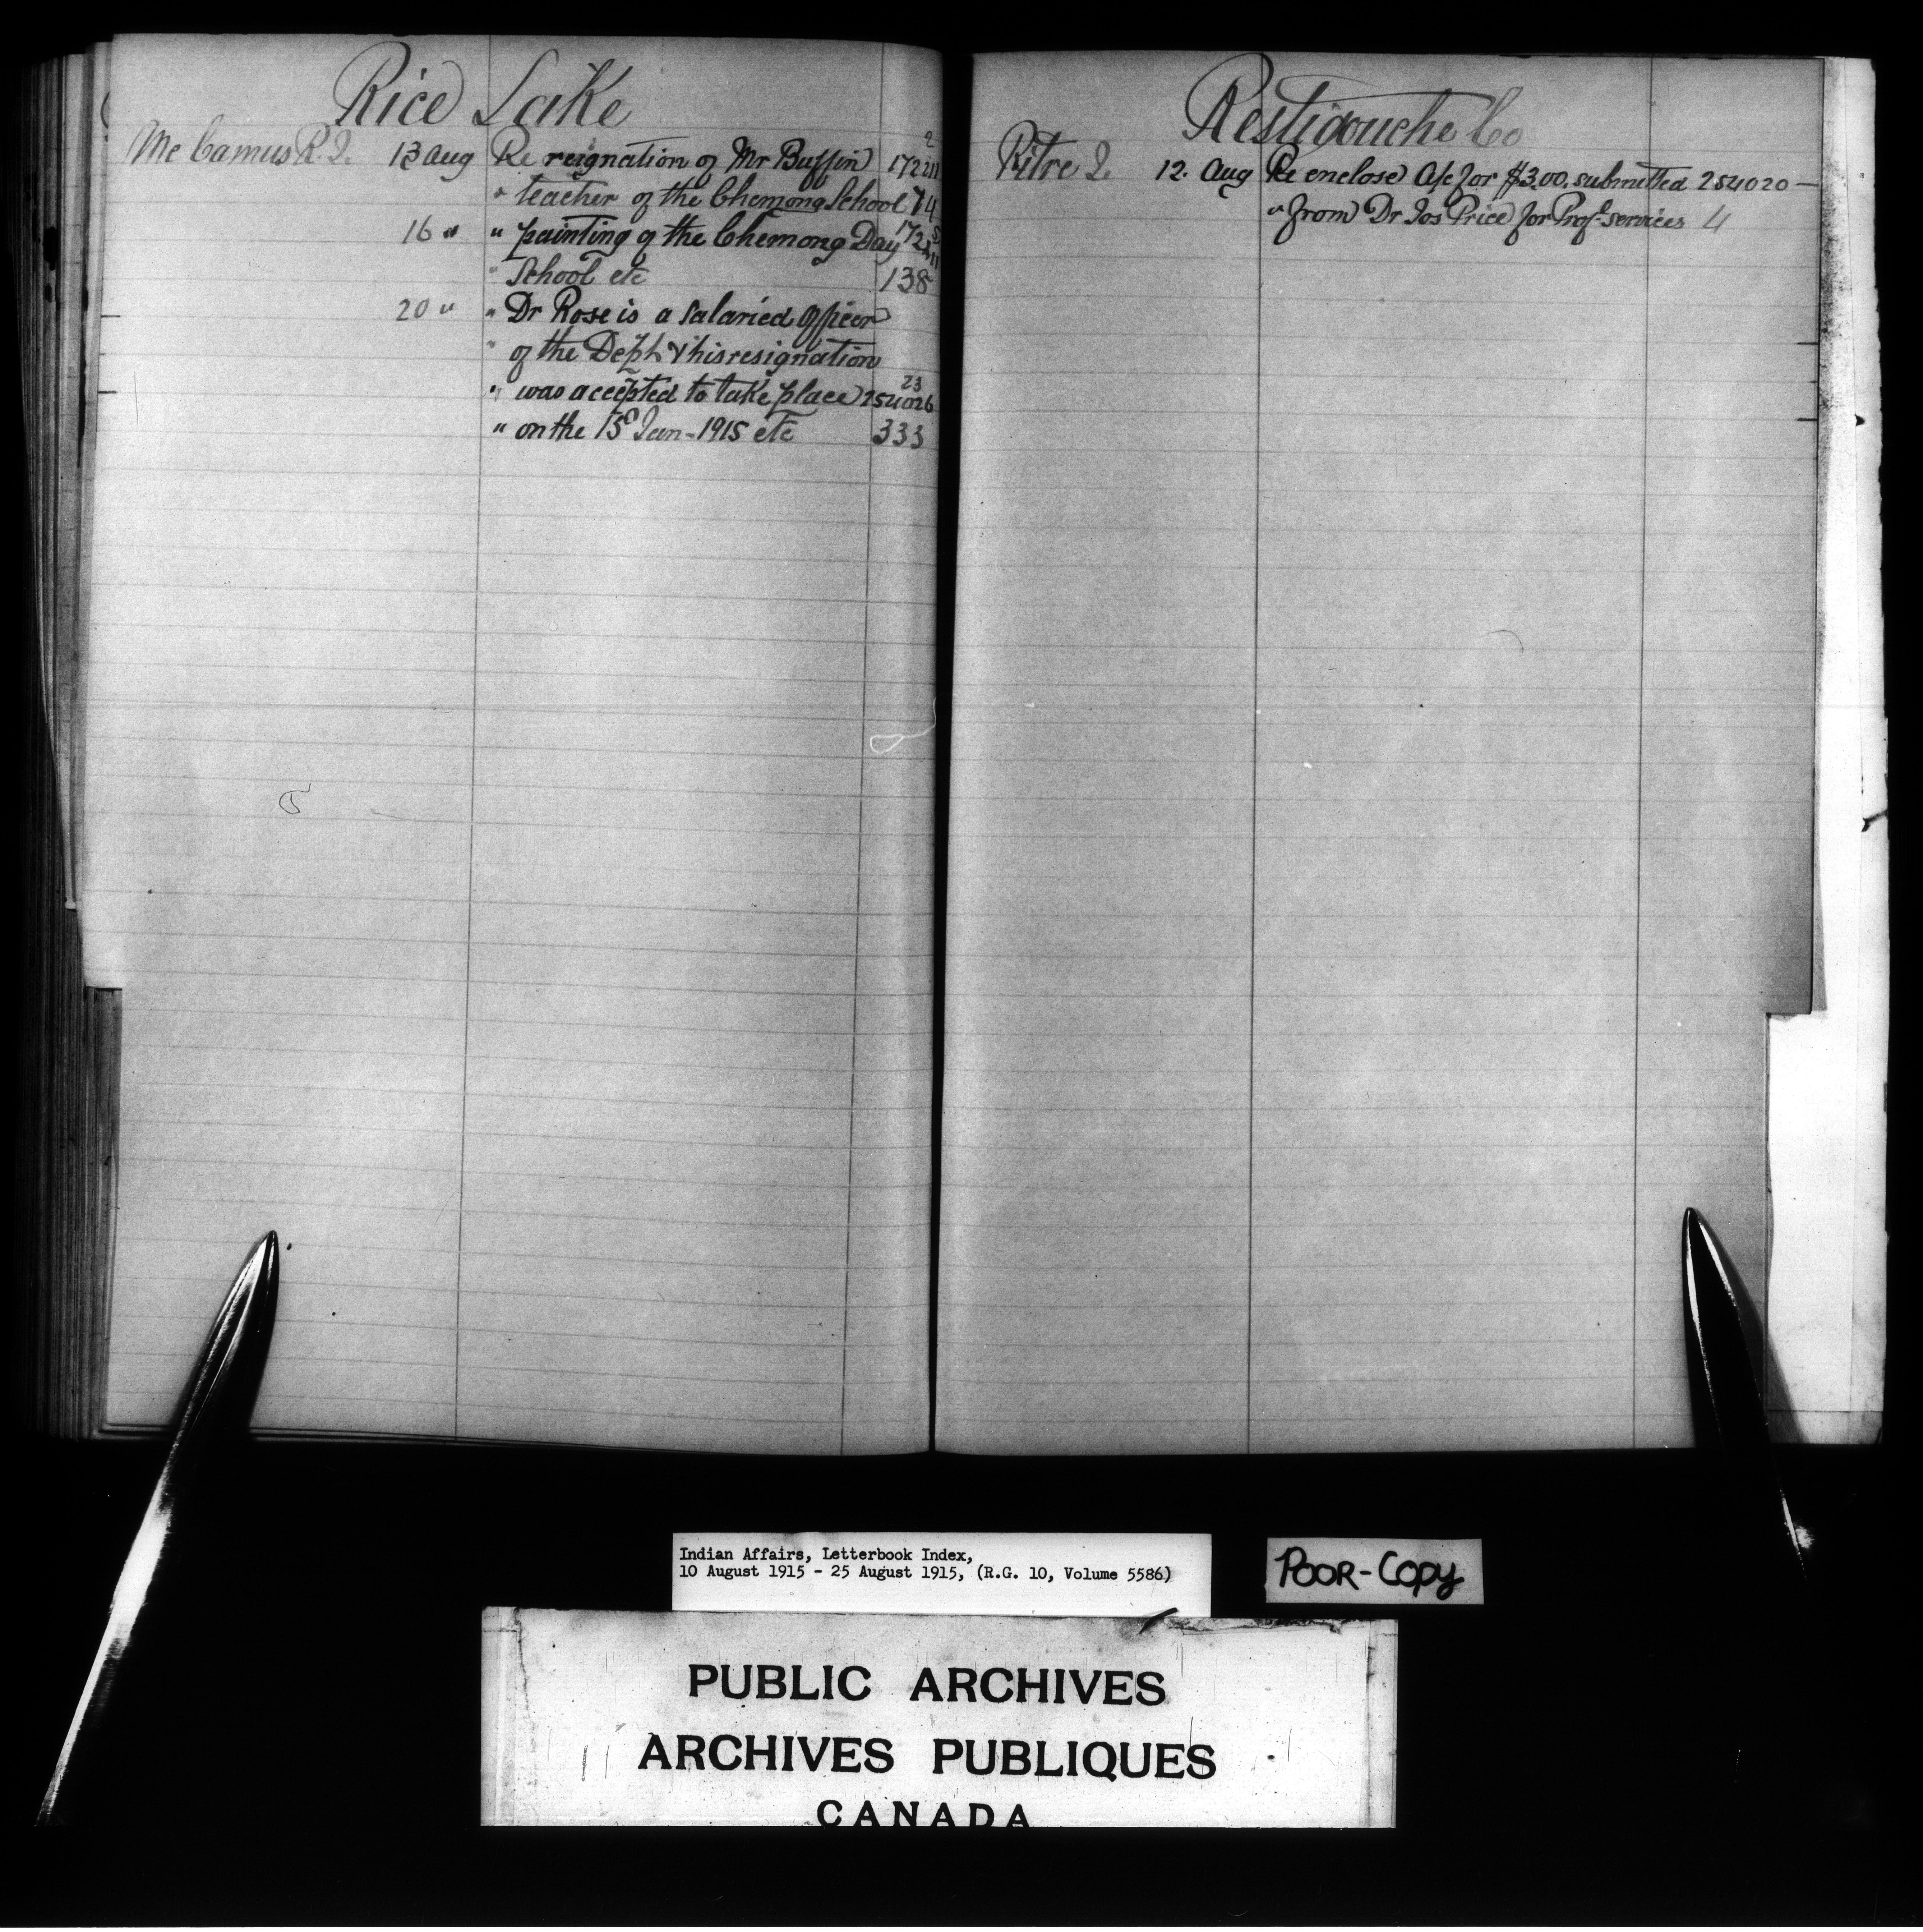 Rice Lake
Mc Camus R. J. 13 Aug Re resignation of Mr Buffin 2 172211
" teacher of the Chemong School 74
16 " " painting of the Chemong Day
" School etc 138
20 " " Dr Rose is a salaried officer
" of the Dept & his resignation
" was accepted to take place 254026 23
" on the 15th Jan - 1915 etc 333
Restigouche Co
Pitre J. 12. Aug Re enclose A/c for $3.00. submitted 254020 —
" from Dr Jos Price for Prof. services 4
Indian Affairs, Letterbook Index,
10 August 1915 - 25 August 1915, (R.G. 10, Volume 5586)
POOR-COPY
PUBLIC ARCHIVES
ARCHIVES PUBLIQUES
CANADA